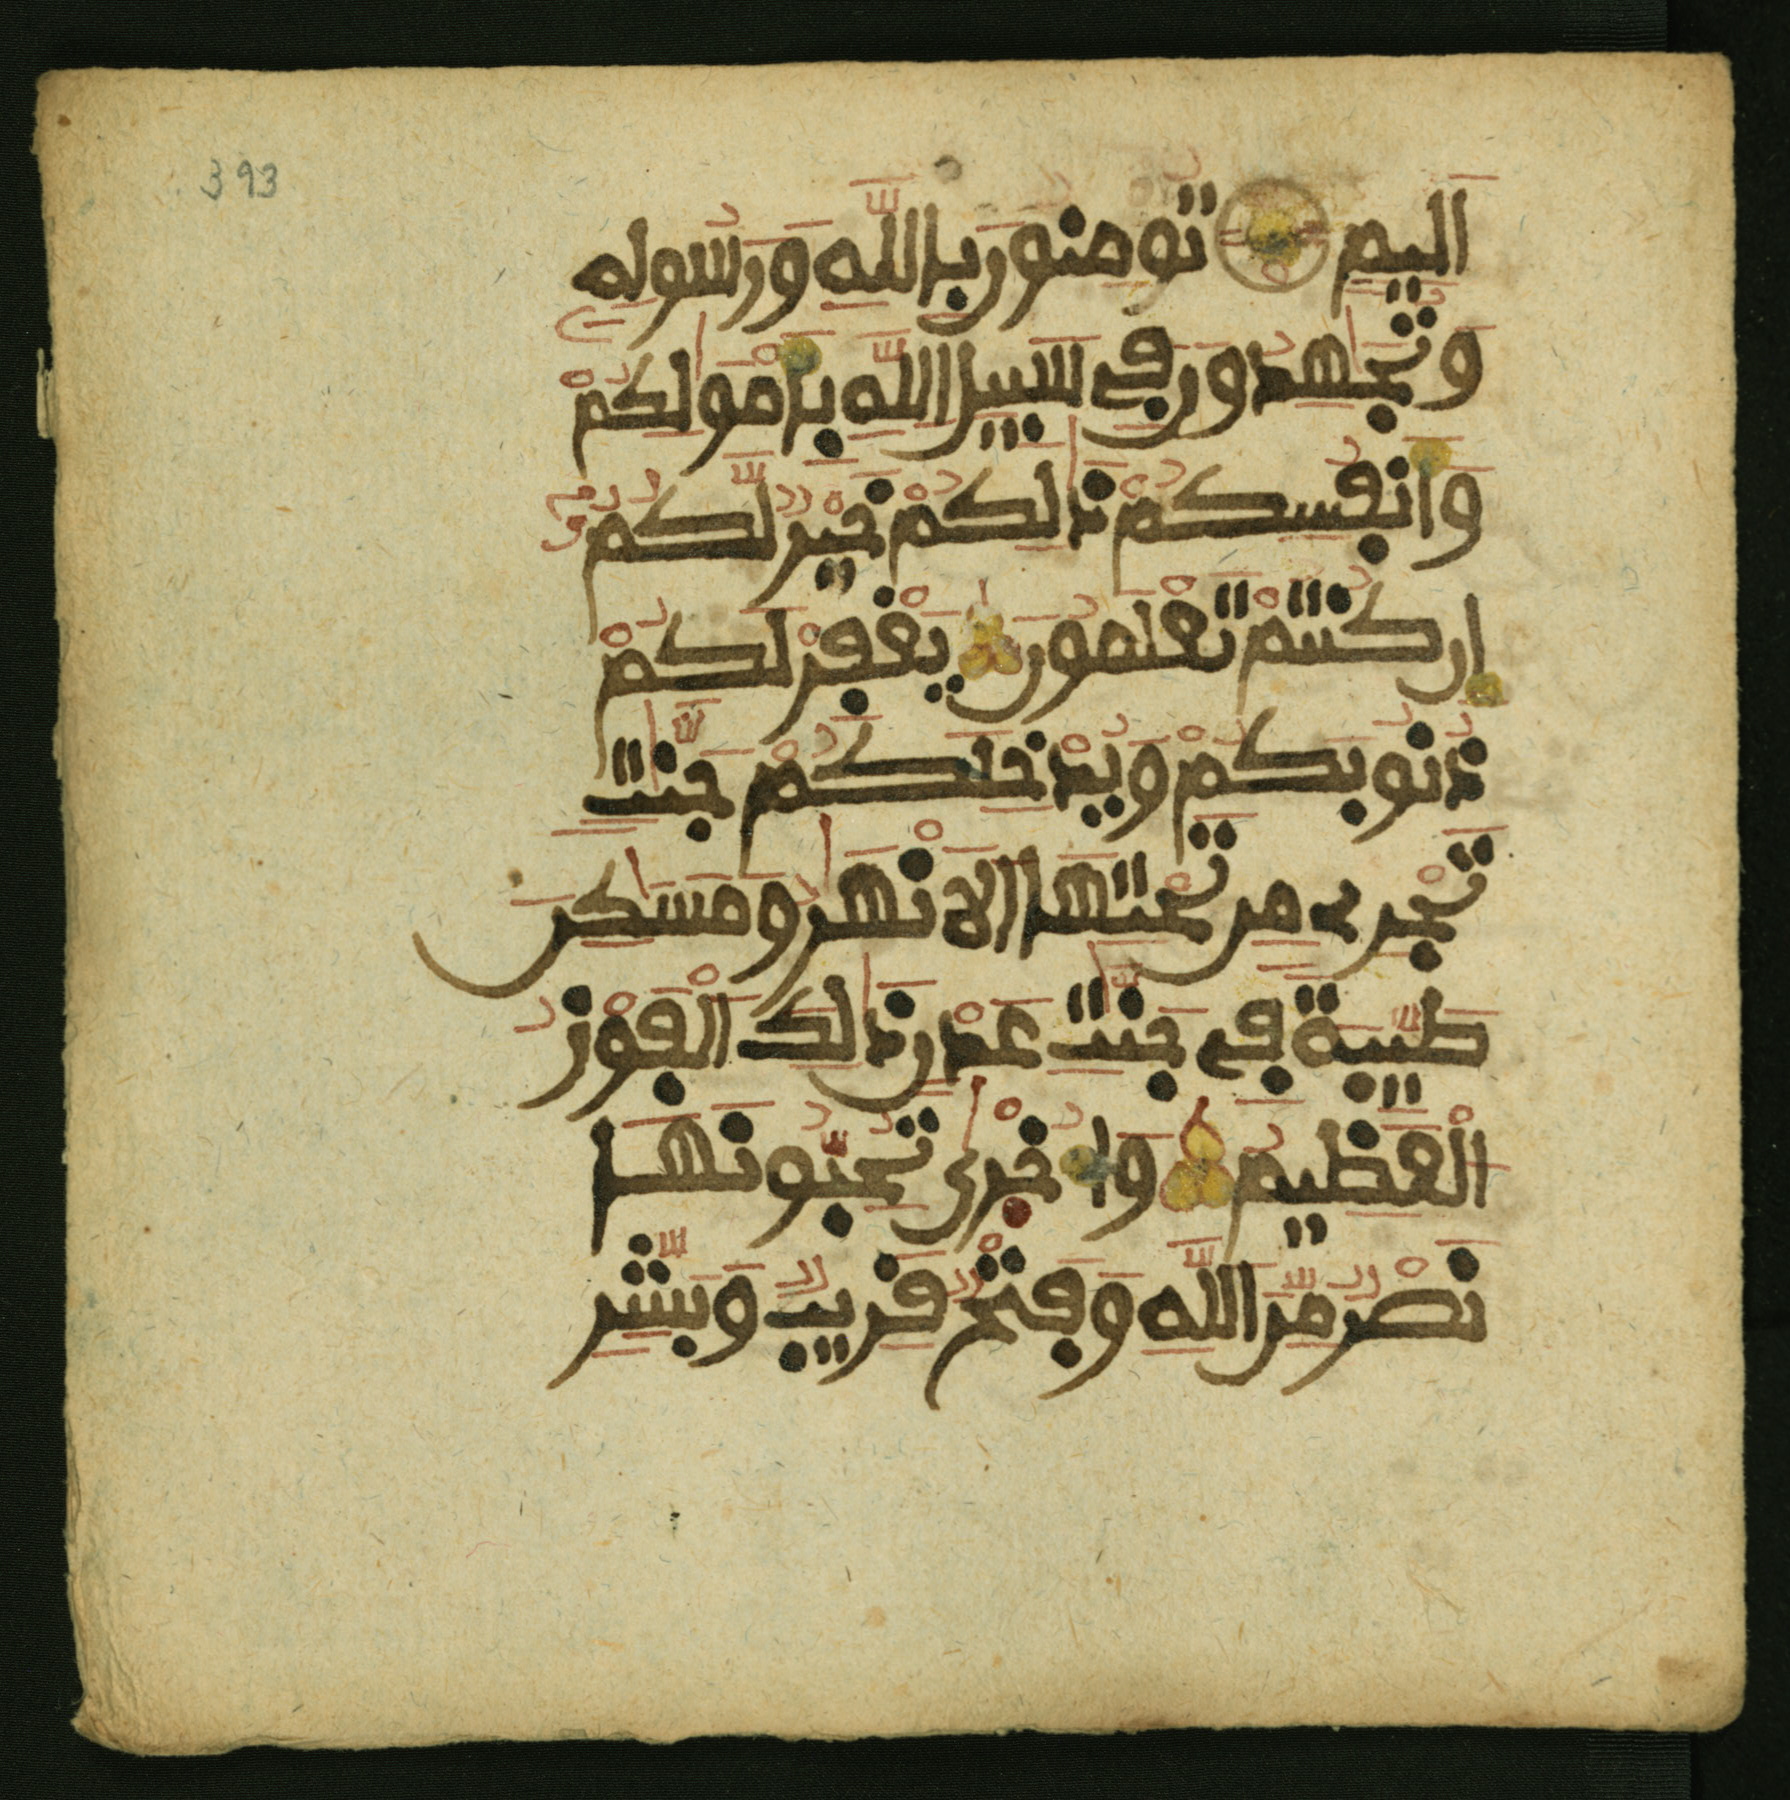 393
اَلِيمٍ تُومِنُونَ بِاللَّهِ وَرَسُولِهِ
وَتُجَٰهِدُونَ فِي سَبِيلِ اللَّهِ بِأَمْوَٰلِكُمْ
وَأَنفُسِكُمْ ذَٰلِكُمْ خَيْرٌ لَّكُمُ
إِن كُنتُمْ تَعْلَمُونَ يَغْفِرْ لَكُمْ
ذُنُوبَكُمْ وَيُدْخِلْكُمْ جَنَّٰتٍ
تَجْرِي مِن تَحْتِهَا الَانْهَٰرُ وَمَسَٰكِنَ
طَيِّبَةً فِي جَنَّٰتِ عَدْنٍ ذَٰلِكَ الْفَوْزُ
الْعَظِيمُ وَأُخْرَىٰ تُحِبُّونَهَا
نَصْرٌ مِّنَ اللَّهِ وَفَتْحٌ قَرِيبٌ وَبَشِّرِ